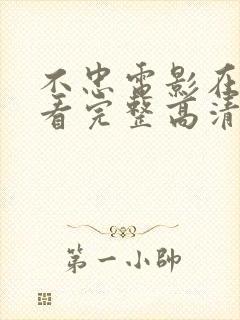 不忠电影在
看完整高清
第一小帥